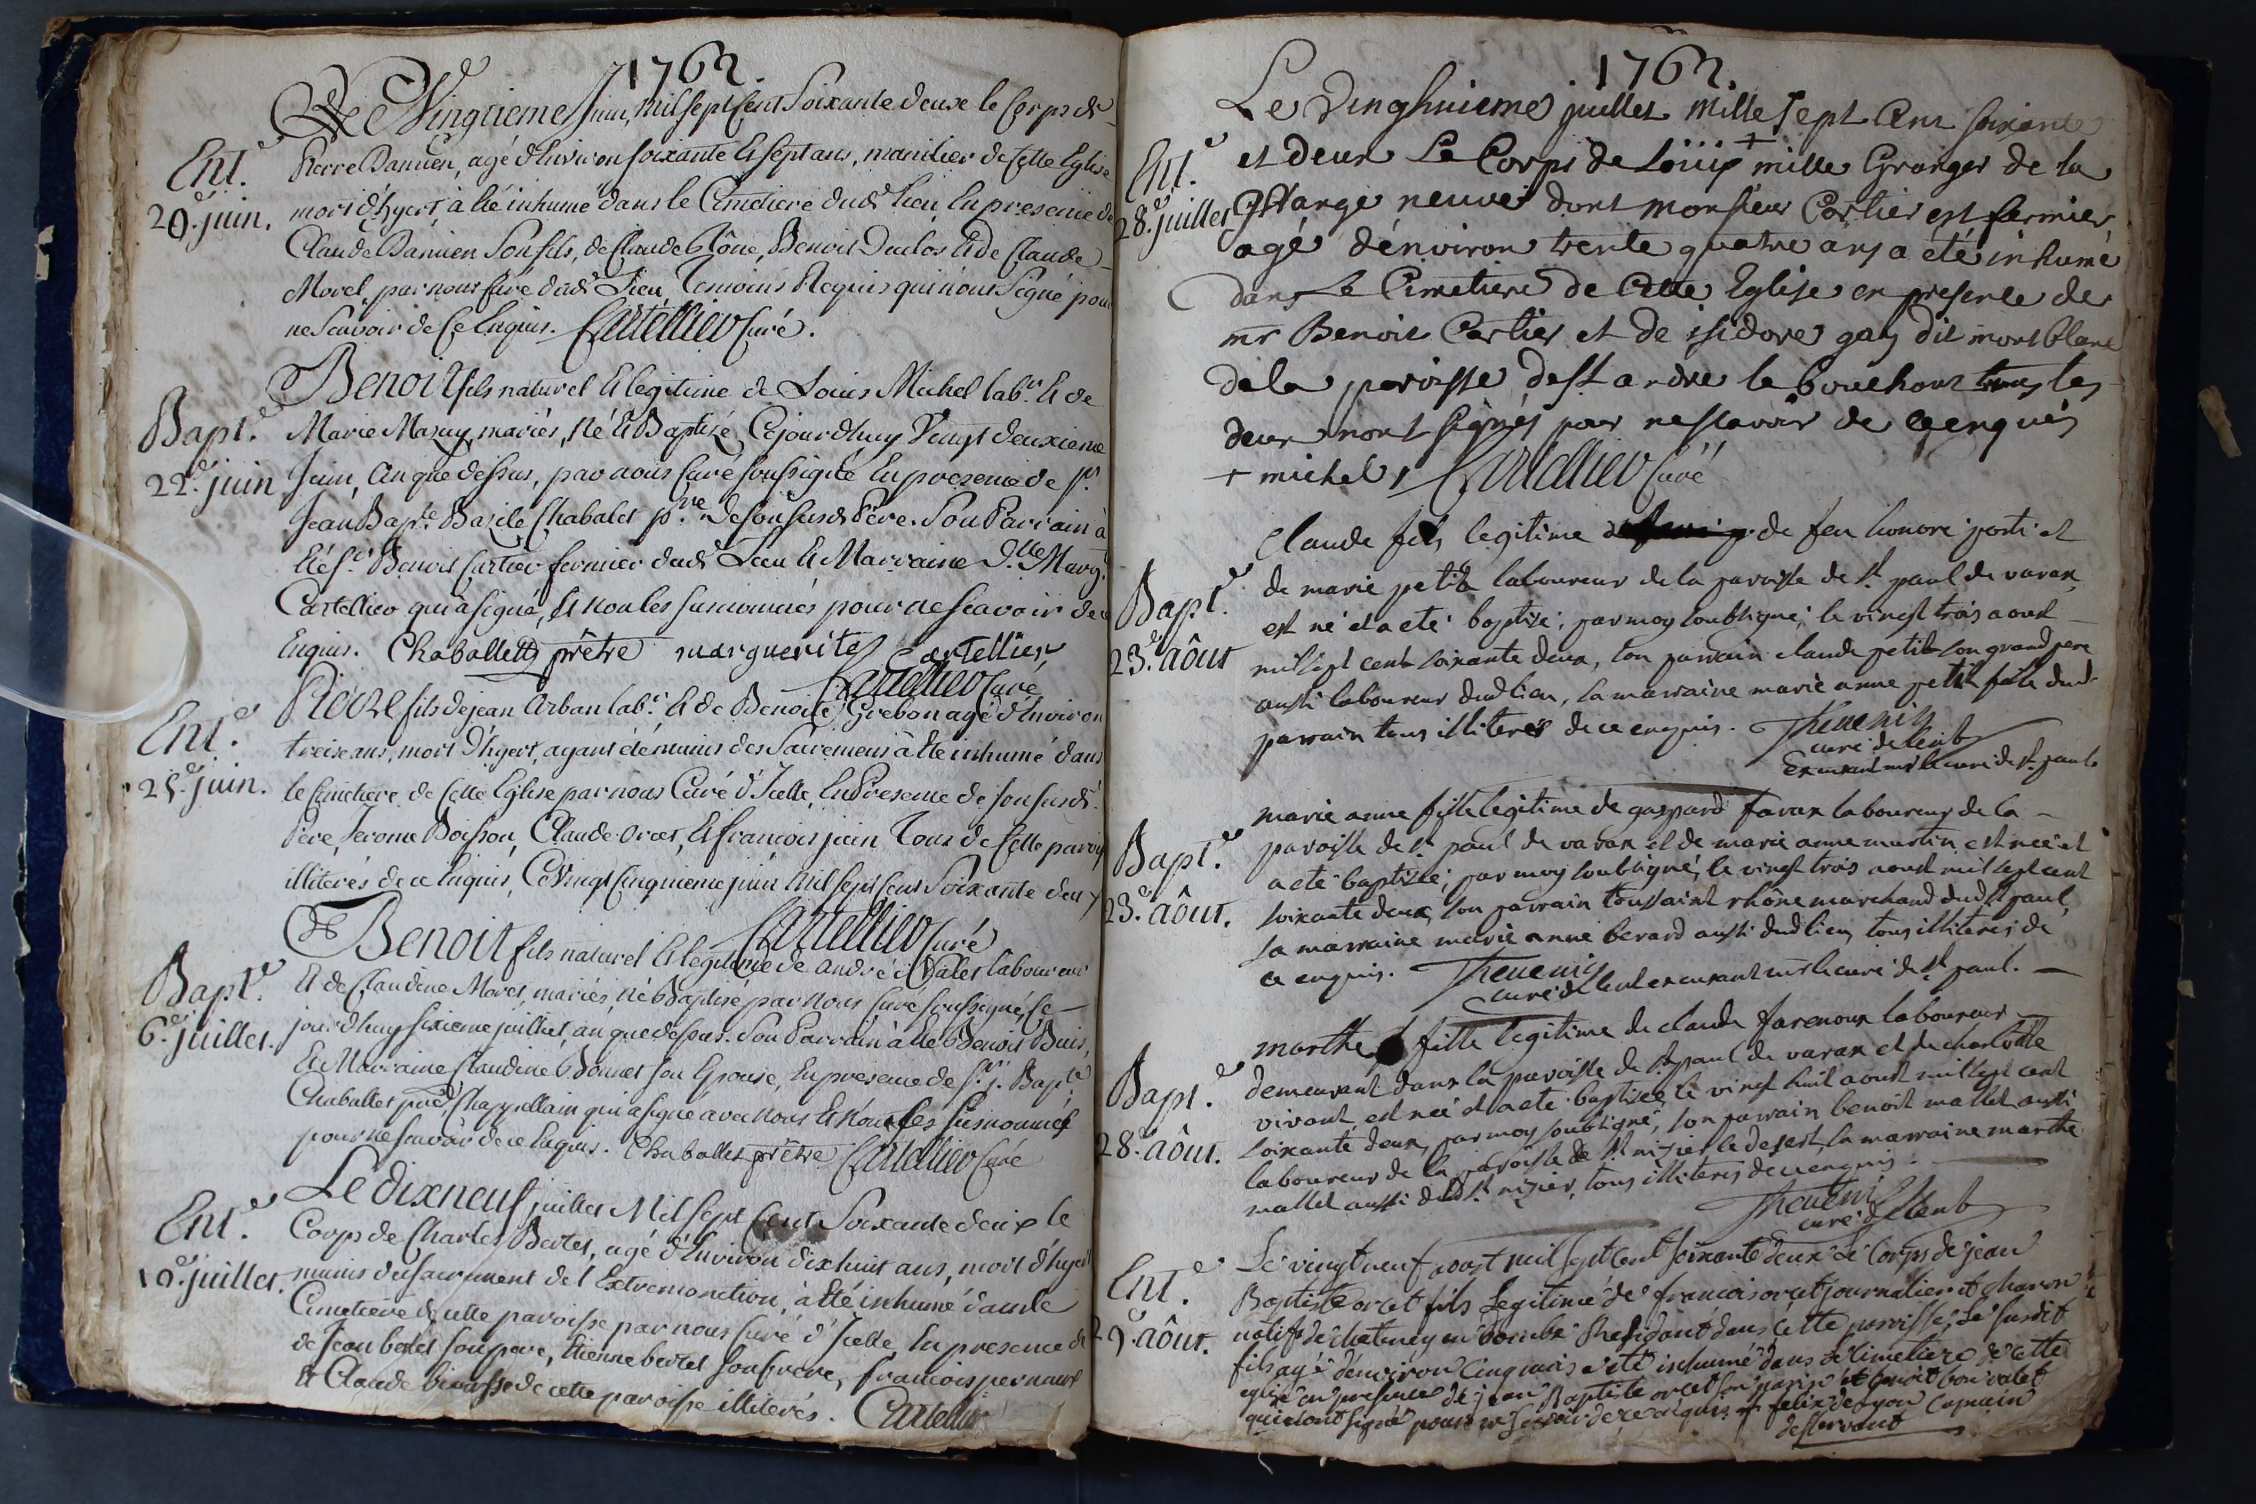 1762.
Le Vingtieme Juin, mil sept Cent Soixante deux le Corps de
Ent.e
20.e juin.
Pierre Damien, agé d'Environ soixante et sept ans, marilier de Cette Eglise
mort d'hyert, à été inhumé dans le Cimetiere dudt lieu, En presence de
Claude Damien Son fils, de Claude Rône, Benoit Duclos et de Claude
Morel, par nous Curé dudt Lieu, Temoins Requis qui n'ont Signé pour
ne Scavoir de Ce Enquis. Cartellier Curé.
Bapt.e
22.e juin
Benoit fils naturel et legitime de Louis Michel labr. et de
Marie Mazuy, mariés, Né et Baptizé Cejourdhuy Vingt deuxieme
Juin, an que dessus, par nous Curé soussigné En presence de Sr.
Jean Bapte. Bazile Chabalet ptre. De son susdt Pere. Son Parrain à
été Sr. Benoit Cartier fermier dudt Lieu et Marraine Dlle Margte.
Cartellier qui à signé, et non les susnommés pour ne scavoir de ce
Enquis. Chaballet prêtre marguerite Cartellier
Cartellier Curé
Ent.e
25.e juin.
Pierre fils de jean Arban labr. et de Benoite Grebon agé d'Environ
treise ans, mort d'hyert, ayant été munis des Sacremens à été inhumé dans
le Cimetiere de Cette Eglise par nous Curé d'Icelle, En Presence de son susdt.
Pere, Jerome Boisson, Claude Orcet, et francois juin Tous de Cette paroisse
illiterés de ce Enquis, Ce Vingt Cinquieme juin Mil Sept Cent Soixante deux
Cartellier Curé
Bapt.e
6.e juillet.
Benoit fils naturel et legitime de andré Valet laboureur
et de Claudine Moret, mariés, né et Baptisé par nous Curé soussigné, Ce
jourdhuy sixieme juillet, an que dessus. Son Parrain à été Benoit Buis,
et Marraine Claudine Bonnet son Epouse, En presence de Sr. j. Bapte
Chaballet ptre Chappellain qui a signé avec nous et non les susnommés
pour ne scavoir de ce Enquis. Chaballet prêtre Cartellier Curé
Ent.e
19.e juillet.
Le dixneuf juillet Mil Sept Cent Soixante deux le
Corps de Charles Bertet, agé d'Environ dixhuit ans, mort d'hyert
munis du sacrement de l'Extremonction, à été inhumé dans le
Cimetiere de cette paroisse par nous Curé d'Icelle, En presence de
de Jean bertet son pere, Etienne bertet son frere, francois pernaud
et Claude de cette paroisse illiterés. Cartellier
1762.
Le vinghuicme juillet mille sept cent soixante
Ent.e
28.e juillet
et deux Le Corps de Loüip + mille Granger de la
Grange neuve dont monsieur Cartier est fermier,
agé d'énviron trente quatre ans a été inhumé
dans Le Cimetiere de Cette Eglise en presence de
mr Benoit Cartier et de isidore gay dit mont blanc
de la paroisse de st andre le bouchout tous les
deux nont signés pour ne scavoir de ce enquis
+ michel, Cartellier Curé
Bapt.e
23.e aôut
Claude fils legitime de feu honoré porti et
de marie petit laboureur de la paroisse de st paul de varax,
est né et a eté baptisé, par moy soubsigné, le vingt trois aoust
mil sept cent soixante deux, son parrain claude petit son grand pere
aussi laboureur dud lieu, la marraine marie anne petit fille dud
parrain tous illiteres de ce enquis. Thevenin
curé de lent
Excusant mr le curé de st paul
Bapt.e
23.e aôut.
marie anne fille legitime de gaspard favax laboureur de la
paroisse de st paul de varax et de marie anne martin est née et
a eté baptisée, par moy soubsigné, le vingt trois aoust mil sept cent
soixante deux, son parrain toussaint rhône marchand dud st paul,
la marraine marie anne berard aussi dud lieu, tous illiteres de
ce enquis. Thevenin
curé de lent excusant mr le curé de st paul.
Bapt.e
28.e aôut.
marthe fille legitime de claude farenoux laboureur
demeurant dans la paroisse de st paul de varax et de charlotte
vivant, est née et a eté baptisée, le vingt huit aoust mil sept cent
soixante deux, par moy soubsigné, son parrain benoit mallet aussi
laboureur de la paroisse de st nizier le desert, la marraine marthe
mallet aussi dud st nizier, tous illiteres de ce enquis.
Thevenin
curé de lent
Ent.e
29.e aôut.
Le vingt neuf aoust mil sept cent soixante deux Le Corps de jean
Baptiste orcet fils Legitime de francois orcet journalier et charon
natif de chateney en bombe Residant dans cette paroisse, Le susdit
fils agé denviron cinq mois a été inhumé dans le cimetiere de cette
eglise en presence de jean Baptiste orcet son parin et benoit bon valet
qui n'ont signé pour ne scavoir de ce enquis f felix de lyon Capucin
desservant